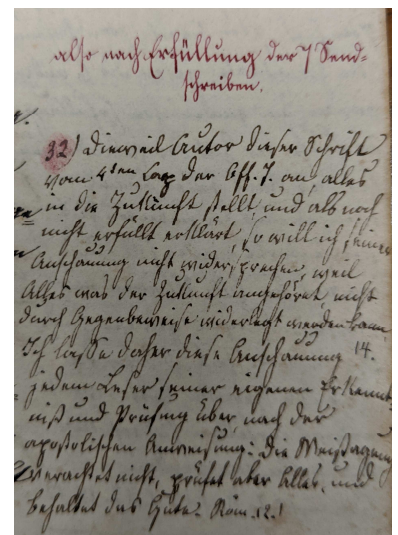 also nach Erfüllung der 7 Send-
schreiben.
32) Dieweil Autor dieser Schrift
vom 4ten Cap der Off. J. an, alles
in die Zukunft stellt und als noch
nicht erfüllt erklärt, so will ich seiner
Anschauung nicht widersprechen, weil
Alles was der Zukunft angehöret nicht
durch Gegenbeweise widerlegt werden kann
Ich lasse daher diese Anschauung 14.
jedem Leser seiner eigenen Erkennt-
niß und Prüfung über, nach der
apostolischen Anweisung: Die Weißagung
verachtet nicht, prüfet aber Alles, und
behaltet das Gute. Röm. 12.!